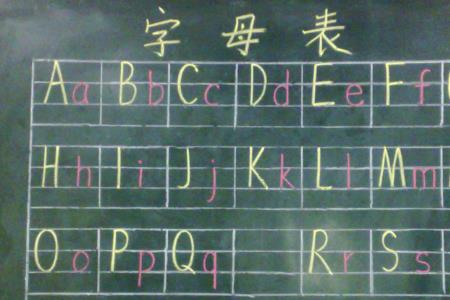 字母表
Aa Bb Cc Dd Ee Ff
Hh Ii Jj Kk Ll Mm
Oo Pp Qq Rr Ss